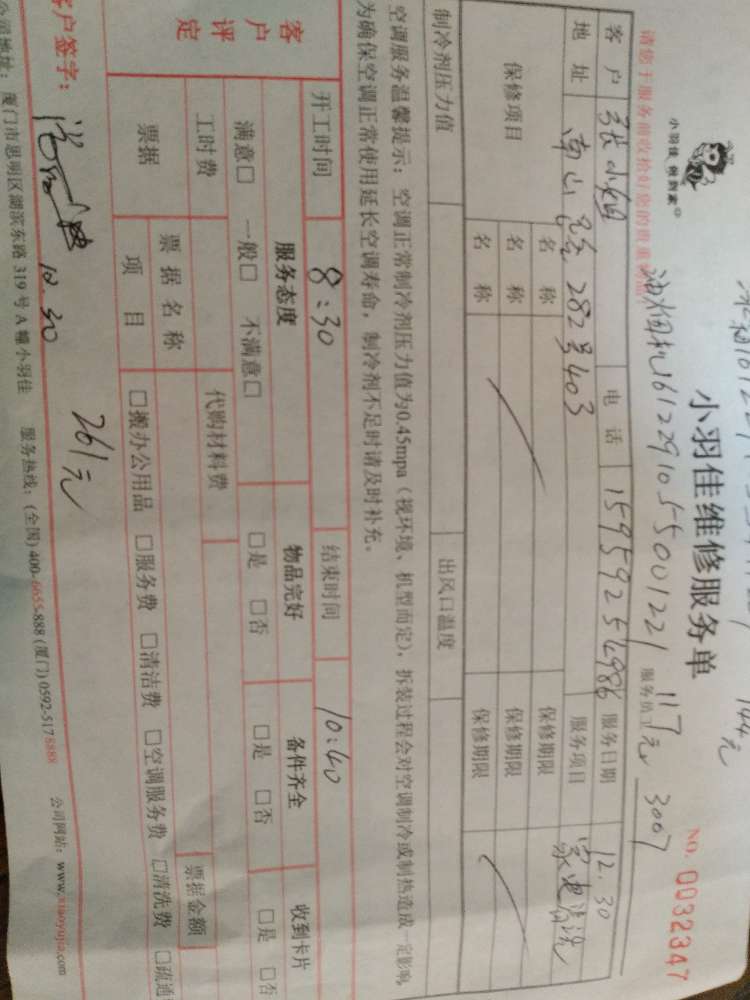 144元
小羽佳 祝到家
小羽佳维修服务单
NO. 0032347
请您于服务前收拾好您的贵重物品
油烟机1612291055001221 117元
服务员 3007
客户 张小姐 电话 15959256986 服务日期 12.30
地址 南山路282号403 服务项目 家电清洗
保修项目 名称 保修期限
名称 保修期限
名称 保修期限
制冷剂压力值 出风口温度
空调服务温馨提示：空调正常制冷剂压力值为0.45mpa（视环境、机型而定），拆装过程会对空调制冷或制热造成一定影响
为确保空调正常使用延长空调寿命，制冷剂不足时请及时补充。
开工时间 8:30 结束时间 10:40
客户评定 服务态度 物品完好 备件齐全 收到卡片
满意□ 一般□ 不满意□ □是 □否 □是 □否 □是 □否
工时费 代购材料费 票据金额
票据 票据名称
项目 □搬办公用品 □服务费 □清洁费 □空调服务费 □清洗费 □疏通
客户签字： 12.30 261元
公司地址：厦门市思明区湖滨东路319号A幢小羽佳 服务热线：(全国)400-6655-888(厦门)0592-5178888 公司网站：www.xiaoyujia.com